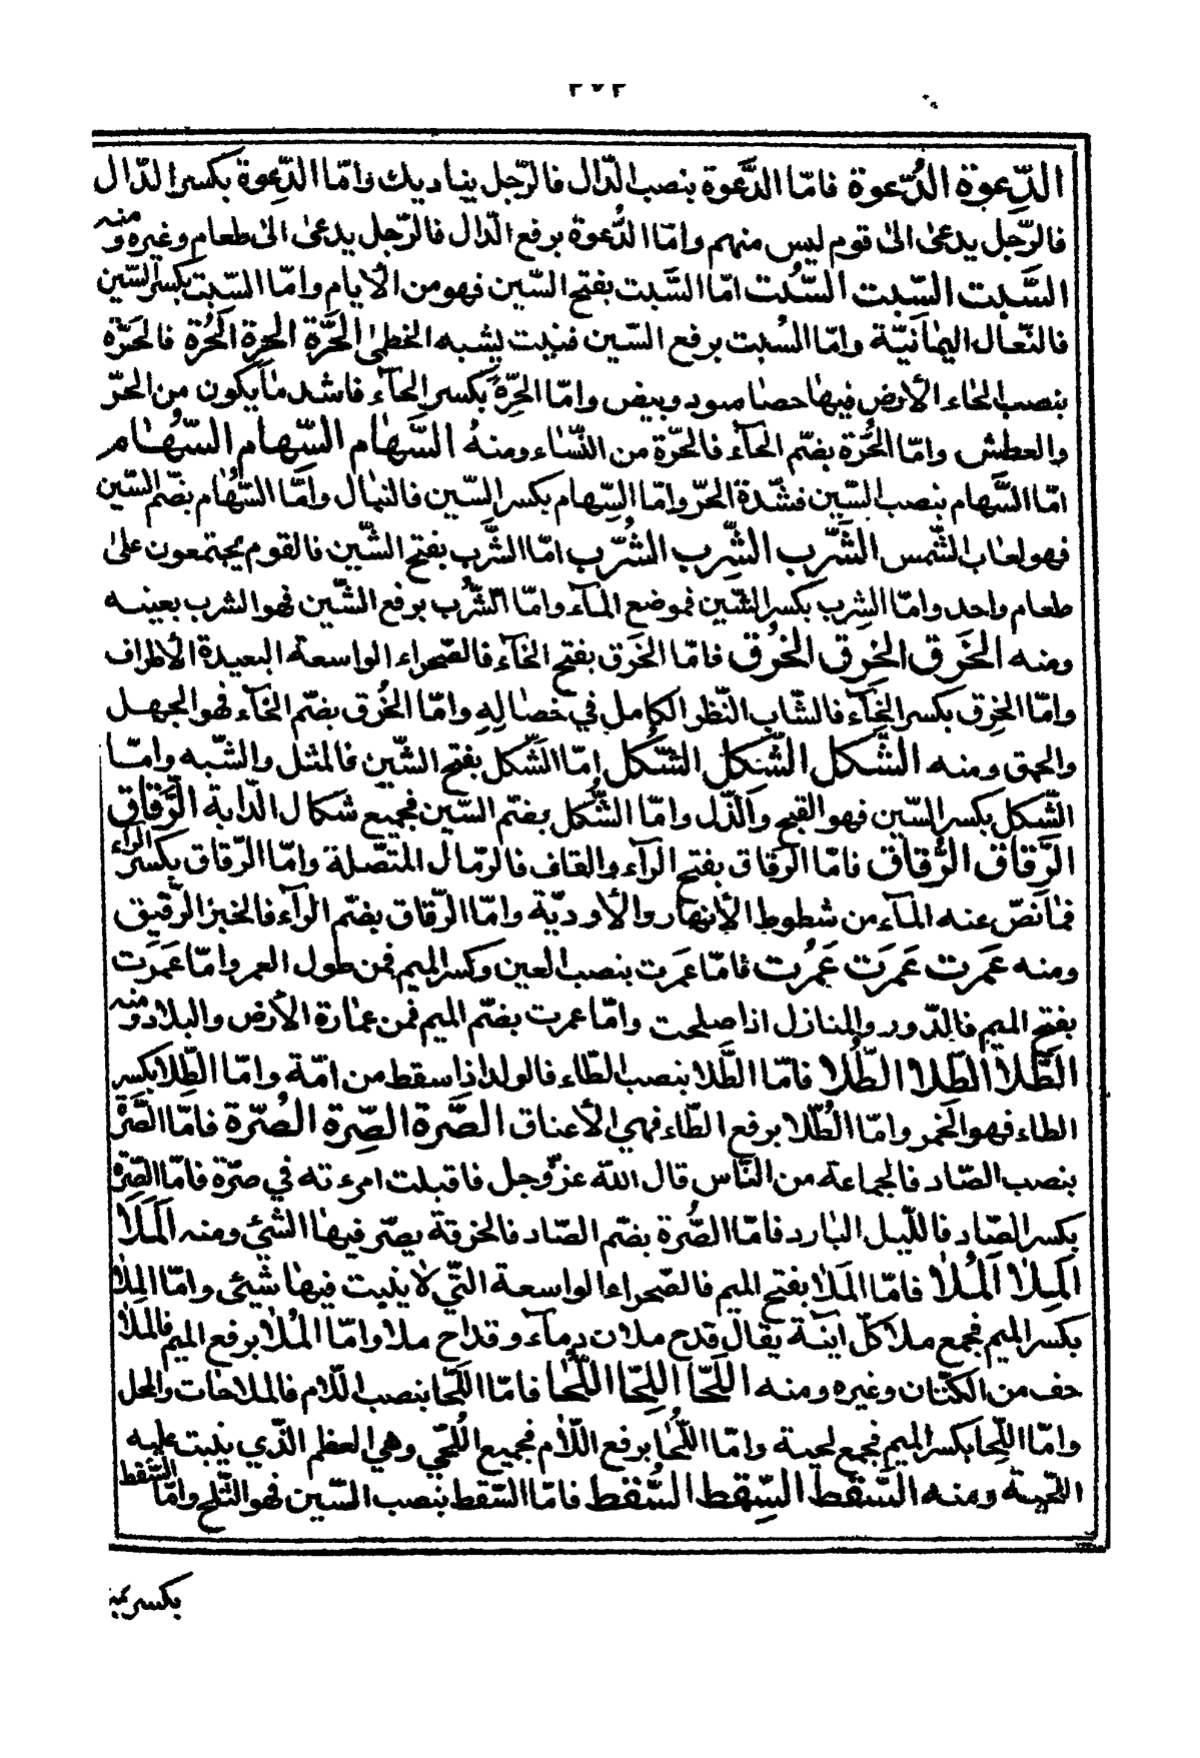 الدِّعوة الدُّعوة فامّا الدَّعوة بنصب الدّال فالرّجل يناديك وامّا الدِّعوة بكسر الدّال
فالرّجل يدعىٰ الىٰ قوم ليس منهم وامّا الدُّعوة برفع الدّال فالرّجل يدعىٰ الىٰ طعام وغيره ومنه
السَّبت السِّبت السُّبت امّا السَّبت بفتح السّين فهو من الأيام وامّا السِّبت بكسر السّين
فالنّعال اليمانيّة وامّا السُّبت برفع السّين فنبت يشبه الخطمىٰ الحَرَّة الحِرة الحُرة فالحَرّة
بنصب الحاء الأرض فيها حصا سود وبيض وامّا الحِرّة بكسر الحآء فاشد ما يكون من الحرّ
والعطش وامّا الحُرَّة بضّم الحآء فالحرّة من النّساء ومنهُ السَّهام السِّهام السُّهام
امّا السَّهام بنصب السّين فشّدة الحرّ وامّا السِّهام بكسر السّين فالنبال وامّا السُّهام بضّم السّين
فهو لعاب الشّمس الشَّرب الشِّرب الشُّرب امّا الشَّرب بفتح الشّين فالقوم يجتمعون علىٰ
طعام واحد وامّا الشِرب بكسر الشّين فموضع المآء وامّا الشُّرب برفع الشّين فهو الشرب بعينه
ومنه الخَرق الخِرق الخُرق فامّا الخَرق بفتح الخآء فالصّحراء الواسعة البعيدة الأطراف
وامّا الخِرق بكسر الخآء فالشّاب النّظر الكامل في خصاله وامّا الخُرق بضّم الخآء فهو الجهل
والحمق ومنه الشَّكل الشِّكل الشُّكل امّا الشَّكل بفتح الشّين فالمثل والشّبه وامّا
الشِّكل بكسر السّين فهو القبح والذّل وامّا الشُّكل بضّم السّين فجميع شكال الدّابة الرَّقاق
الرِّقاق الرُّقاق فامّا الرَّقاق بفتح الرآء والقاف فالرّمال المتصّلة وامّا الرّقاق بكسر الرآء
فما نصّ عنه المآء من شطوط الأنهار والأوديّة وامّا الرّقاق بضّم الرآء فالخبز الرّقيق
ومنه عَمِرت عَمَرَت عَمُرت فامّا عَمِرت بنصب العين وكسر الميم فمن طول العمر وامّا عَمَرَت
بفتح الميم فالدّور والمنازل اذا صلحت وامّا عمرت بضّم الميم فمن عمارة الأرض والبلاد ومنه
الطَّلا الطِّلا الطُّلا فامّا الطَّلا بنصب الطّاء فالولد اذا سقط من امّة وامّا الطِّلا بكسر
الطاء فهو الخمر وامّا الطُّلا برفع الطّاء فهي الأعناق الصَّرة الصِّرة الصُرّة فامّا الصَّرة
بنصب الصّاد فالجماعة من النّاس قال اللّٰه عزّ وجل فاقبلت امرءته في صرّة فامّا الصِّرّة
بكسر الصّاد فاللّيل البارد فامّا الصُّرة بضّم الصّاد فالخرقة يصّر فيها الشيئ ومنه المَلَا
المِلا المُلا فامّا المَلا بفتح الميم فالصّحراء الواسعة التّي لا ينبت فيها شيئ وامّا المِلا
بكسر الميم فجمع ملا كلّ انية يقال قدح ملان دمآء وقداح ملا وامّا المُلا برفع الميم فالملا
حف من الكتّان وغيره ومنه اللَّحا اللِحّا اللُّحا فامّا اللَّحا بنصب اللّام فالملاحات والحل
وامّا اللِّحا بكسر الميم فجمع لحية وامّا اللُّحا برفع اللّام فجميع اللُحّي وهي العظم الذّي ينبت عليه
اللحّية ومنه السَّقط السِّقط السُّقط فامّا السَّقط بنصب السّين فهو الثّلج وامّا السِّقط
بكسر